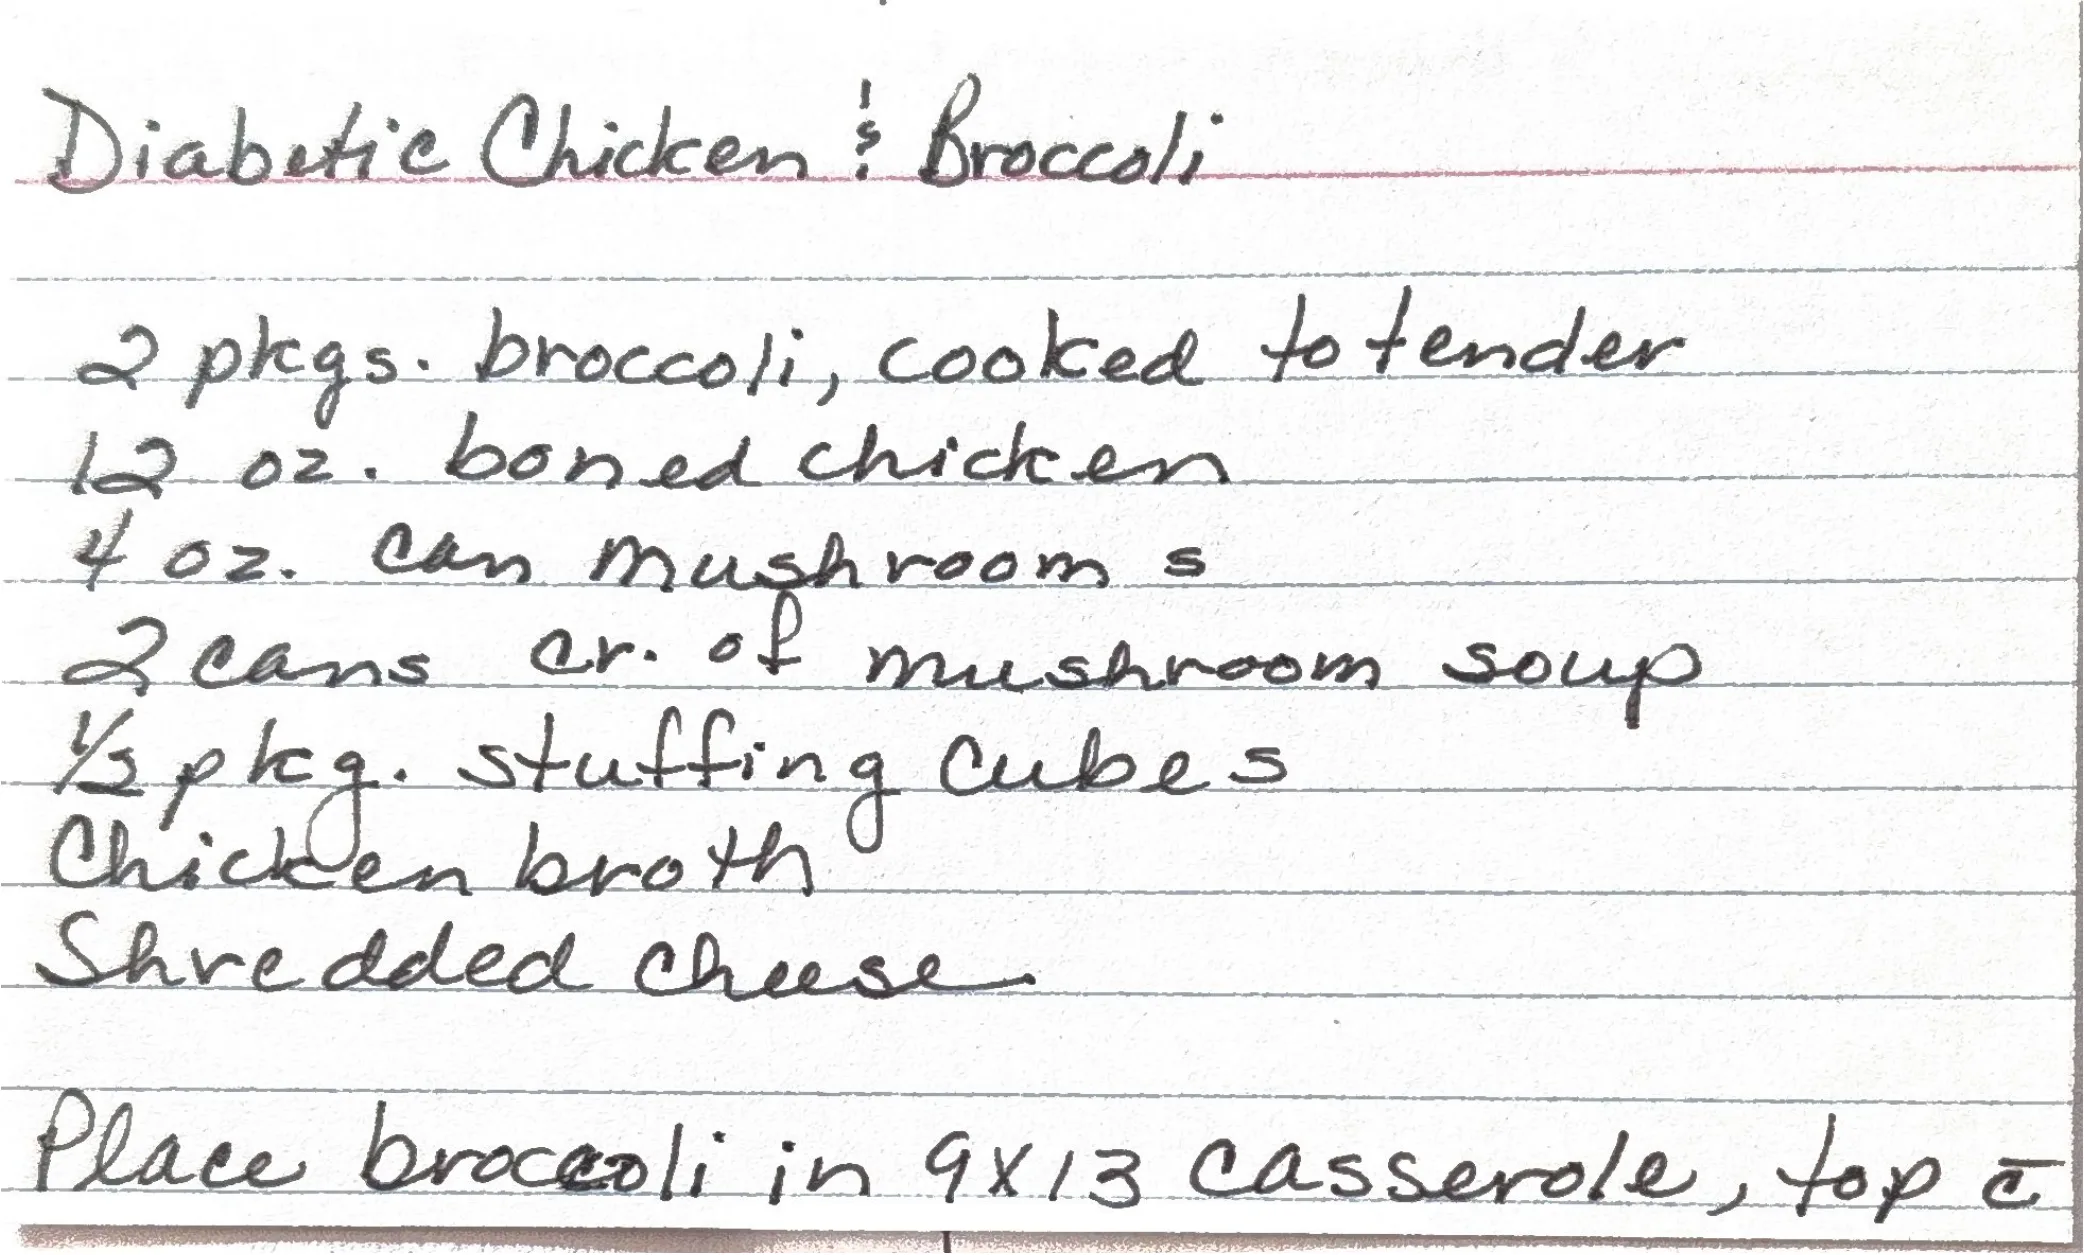 Diabetic Chicken & Broccoli
2 pkgs. broccoli, cooked to tender
12 oz. boned chicken
4 oz. can mushrooms
2 cans cr. of mushroom soup
1/2 pkg. stuffing cubes
Chicken broth
Shredded cheese
Place broccoli in 9X13 casserole, top c̄